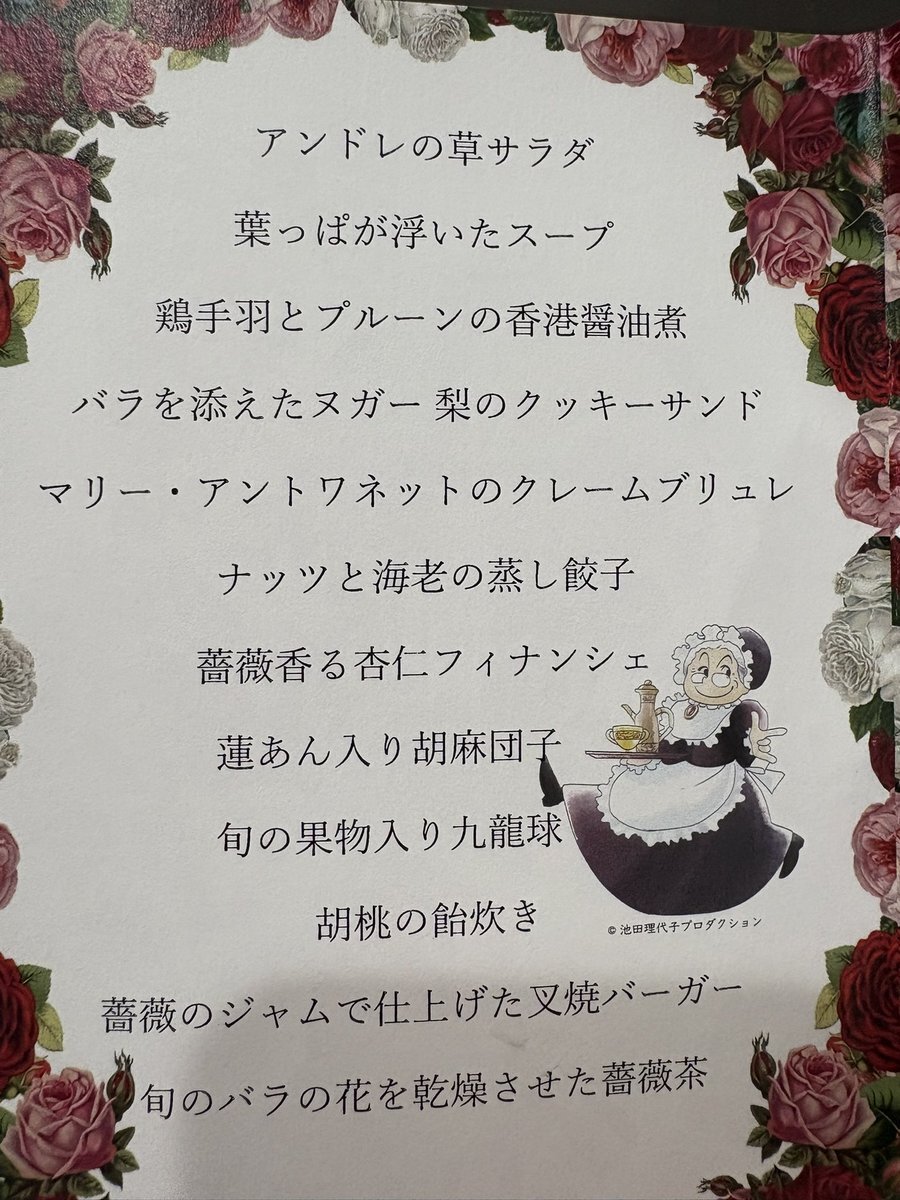 アンドレの草サラダ
葉っぱが浮いたスープ
鶏手羽とプルーンの香港醤油煮
バラを添えたヌガー 梨のクッキーサンド
マリー・アントワネットのクレームブリュレ
ナッツと海老の蒸し餃子
薔薇香る杏仁フィナンシェ
蓮あん入り胡麻団子
旬の果物入り九龍球
胡桃の飴炊き
© 池田理代子プロダクション
薔薇のジャムで仕上げた叉焼バーガー
旬のバラの花を乾燥させた薔薇茶